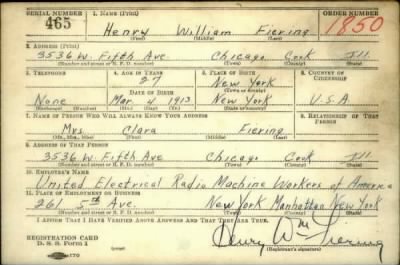 SERIAL NUMBER 1. NAME (Print) ORDER NUMBER
465 Henry William Fiering 1850
(First) (Middle) (Last)
2. ADDRESS (Print)
3536 W. Fifth Ave. Chicago Cook Ill.
(Number and street or R. F. D. number) (Town) (County) (State)
3. TELEPHONE 4. AGE IN YEARS 5. PLACE OF BIRTH 6. COUNTRY OF CITIZENSHIP
27 New York
DATE OF BIRTH (Town or county)
None Mar. 4 1913 New York U.S.A
(Exchange) (Number) (Mo.) (Day) (Yr.) (State or country)
7. NAME OF PERSON WHO WILL ALWAYS KNOW YOUR ADDRESS 8. RELATIONSHIP OF THAT PERSON
Mrs. Clara Fiering
(Mr., Mrs., Miss) (First) (Middle) (Last)
9. ADDRESS OF THAT PERSON
3536 W. Fifth Ave Chicago Cook Ill.
(Number and street or R. F. D. number) (Town) (County) (State)
10. EMPLOYER'S NAME
United Electrical Radio Machine Workers of America
11. PLACE OF EMPLOYMENT OR BUSINESS
261 5th Ave. New York Manhattan New York
(Number and street or R. F. D. number) (Town) (County) (State)
I AFFIRM THAT I HAVE VERIFIED ABOVE ANSWERS AND THAT THEY ARE TRUE.
REGISTRATION CARD
D. S. S. Form 1 Henry Wm Fiering
(Registrant's signature)